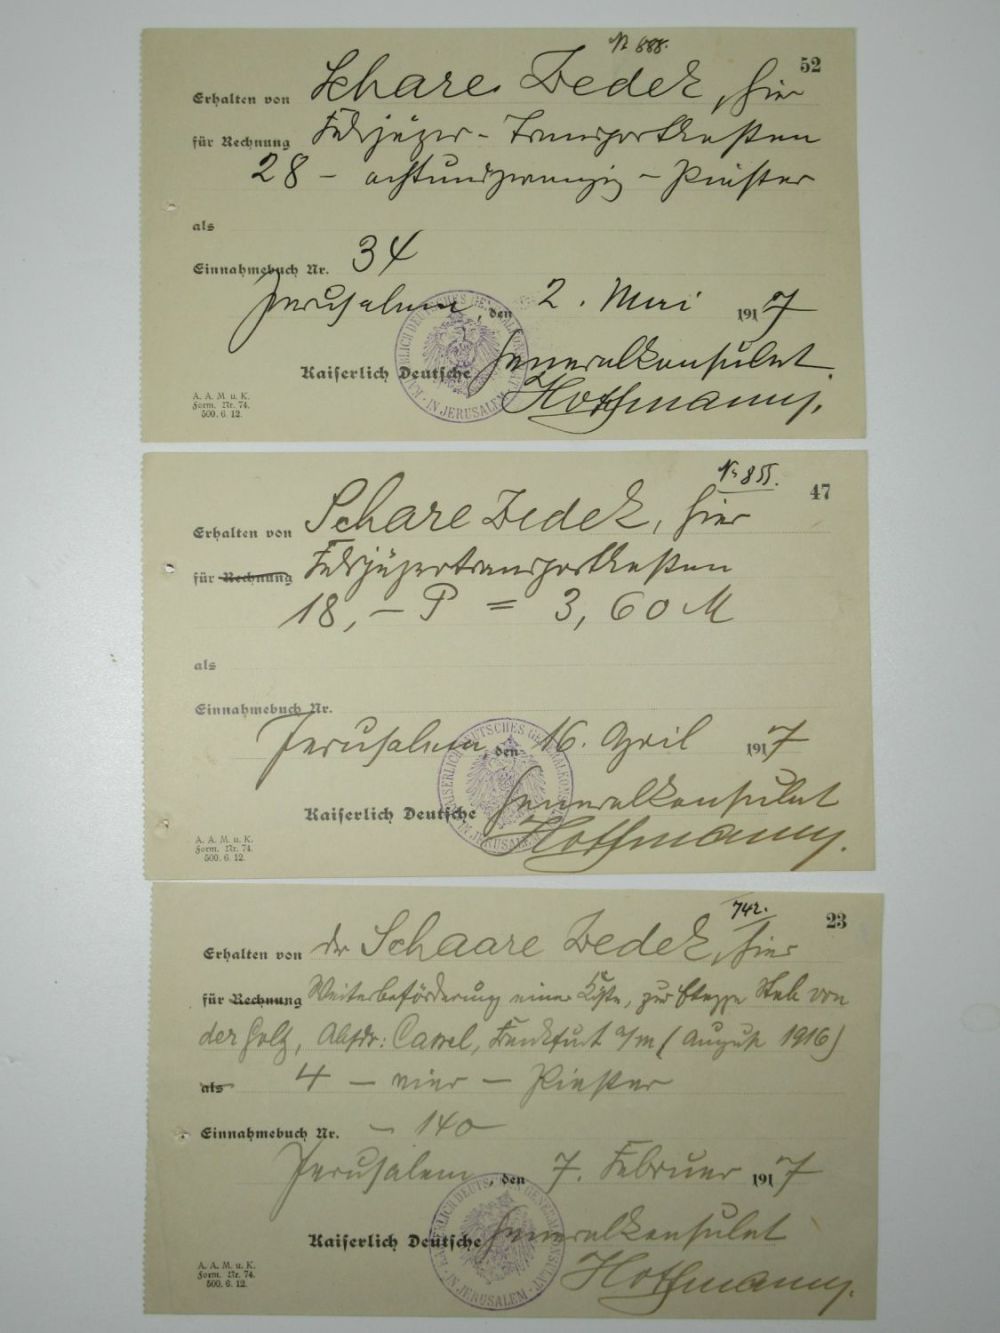 № 888.
52
Erhalten von Schare Zedek, hier
für Rechnung Feldjäger-Transportkosten
28 - achtundzwanzig - Piaster
als
Einnahmebuch Nr. 34
Jerusalem, den 2. Mai 1917
Kaiserlich Deutsche Generalkonsulat
Hoffmann.
KAISERLICH DEUTSCHES GENERALKONSULAT · IN JERUSALEM ·
A. A. M. u. K.
Form. Nr. 74.
500. 6. 12.
№ 855.
47
Erhalten von Schare Zedek, hier
für Rechnung Feldjägertransportkosten
18,- P = 3,60 M
als
Einnahmebuch Nr.
Jerusalem, den 16. April 1917
Kaiserlich Deutsche Generalkonsulat
Hoffmann.
KAISERLICH DEUTSCHES GENERALKONSULAT · IN JERUSALEM ·
A. A. M. u. K.
Form. Nr. 74.
500. 6. 12.
742.
23
Erhalten von Schaare Zedek, hier
für Rechnung Weiterbeförderung einer Kiste, zur Etappe Stab von
der Golz, Absdr: Cassel, Frankfurt a/m (August 1916)
als 4 - vier - Piaster
Einnahmebuch Nr. - 140
Jerusalem, den 7. Februar 1917
Kaiserlich Deutsche Generalkonsulat
Hoffmann.
KAISERLICH DEUTSCHES GENERALKONSULAT · IN JERUSALEM ·
A. A. M. u. K.
Form. Nr. 74.
500. 6. 12.